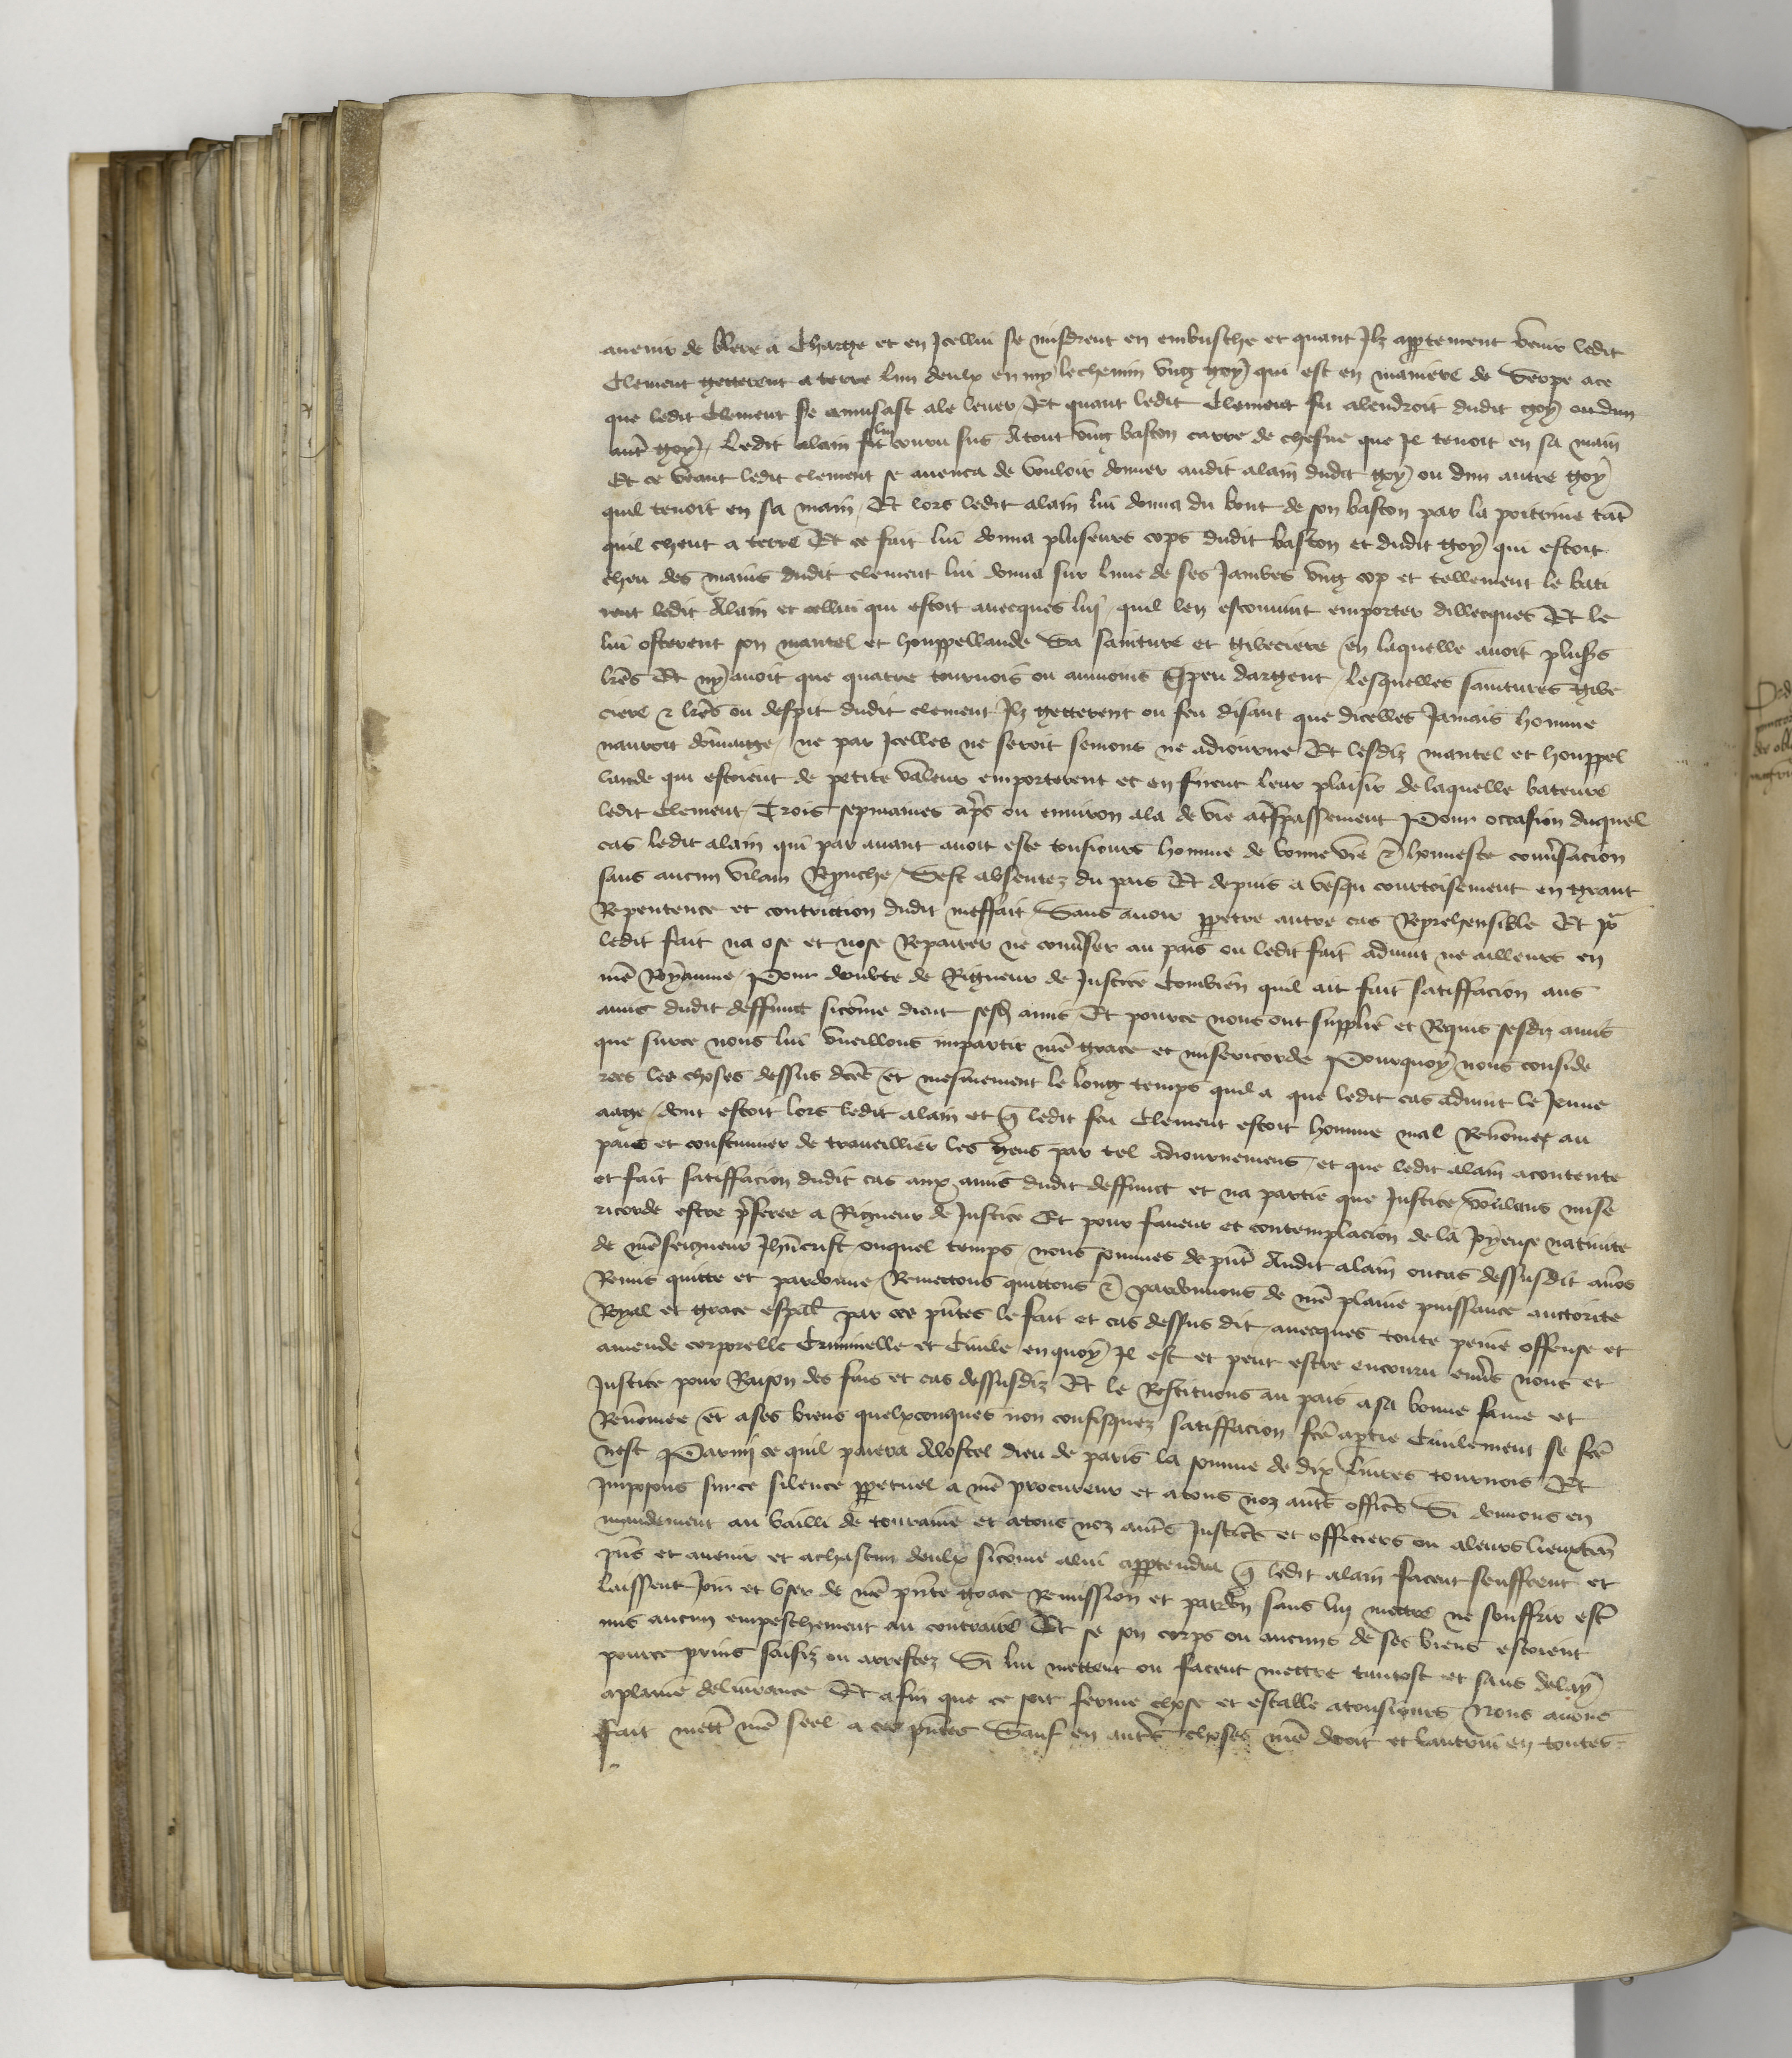 avenir de blere a Charge et en Icellui se misdrent en embusche et quant Ilz apperceurent venir ledit
Clement getterent a terre lun deulx en my le chemin vng goy qui est en maniere de serpe ace
que ledit Clement se amusast ale lever Et quant ledit Clement fu alendroit dudit goy ou dun
autre goy ledit alain lui couru sus Atout vng baston carre de chesne que Il tenoit en sa main
Et ce veant ledit clement se avenca de vouloir donner audit alain dudit goy ou dun autre goy
quil tenoit en sa main Et lors ledit alain lui donna du bout de son baston par la poitrine tant
quil cheut a terre Et ce fait lui donna pluseurs cops dudit baston et dudit goy qui estoit
cheu des mains dudit clement lui donna sur lune de ses Jambes vng cop et tellement le bati
rent ledit Alain et cellui qui estoit avecques luy quil len escouvint emporter dillecques Et le
lui osterent son mantel et houppellande Sa sainture et gibeciere en laquelle avoit plus̄
lrēs Et ny avoit que quatre tournois ou aumoins peu dargent lesquelles saintures gibe
ciere ⁊ lrēs ou despit dudit clement Ilz getterent ou feu disant que dicelles Jamais homme
nauroit dōmaige ne par Icelles ne seroit semons ne adiourne Et lesdiz mantel et houppel
lande qui estoient de petite valeur emporterent et en firent leur plaisir de laquelle bateure
ledit Clement Trois sepmaines aprs ou environ ala de vie a trespassement Pour occasion duquel
cas ledit alain qui par avant avoit este tousiours homme de bonne vie ⁊ honneste conversacion
sans aucun vilain Reprouche Sest absentez du pais Et depuis a vesqu courtoisement en grant
Repentence et contriction dudit meffait Sans avoir ppetre autre cas Reprehensible Et pr
ledit fait na ose et nose Repairer ne converser au pais ou ledit fait advint ne ailleurs en
nrē Royaume Pour doubte de Rigueur de Justice Combien quil ait fait satisffacion aus
amis dudit deffunct sicōme dient sesd amis Et pource nous ont supplie et Requis sesdiz amis
que surce nous lui vueillons impartir nrē grace et misericorde Pourquoy nous conside
rees les choses dessus dcēs et mesmement le long temps quil a que ledit cas advint le Jeune
aage dont estoit lors ledit alain et q̄ ledit feu Clement estoit homme mal Renōmee au
pais et coustumier de traveillier les gens par tel adiournemens et que ledit alain acontente
et fait satisffacion dudit cas aux amis dudit deffunct et na partie que Justice voulans mise
ricorde estre preferee a Rigueur de Justice Et pour faveur et contemplacion de la Joyeuse nativite
de nrēseigneur Jhūcrist ouquel temps nous sommes de pn̄t Audit alain oucas dessusdit avōs
Remis quitte et pardonne Remettons quittons ⁊ pardonnons de nrē plaine puissance auctorite
Royal et grace espāl par ces pn̄tes le fait et cas dessus dit avecques toute peine offense et
amende corporelle Criminelle et Civile en quoy Il est et peut estre encouru envers nous et
Justice pour Raison des fais et cas dessusdiz Et le Restituons au pais asa bonne fame et
Renōmee et ases biens quelxconques non confisquez satisffacion fcē aptie Civilement se fcē
nest Parmi ce quil paiera Alostel dieu de paris la somme de dix livres tournois Et
Imposons surce silence ppetuel a nrē procureur et atous noz autrs offics Si donnons en
mandement au bailli de touraine et atous noz autrs Justics et officiers ou aleurs lieuxten̄
pn̄s et avenir et achascun deulx sicōme alui appartendra q̄ ledit alain facent seuffrent et
laissent Joir et vser de nrē pn̄te grace Remission et pardon sans luy mettre ne souffrir estr
mis aucun empeschement au contraire Et se son corps ou aucuns de ses biens estoient
pource prins saisiz ou arrestez Si lui mettent ou facent mettre tantost et sans delay
aplaine delivrance Et afin que ce soit ferme chose et estable atousiours Nous avons
fait mettr nrē seel a ces pn̄tes Sauf en autrs choses nrē droit et lautrui en toutes